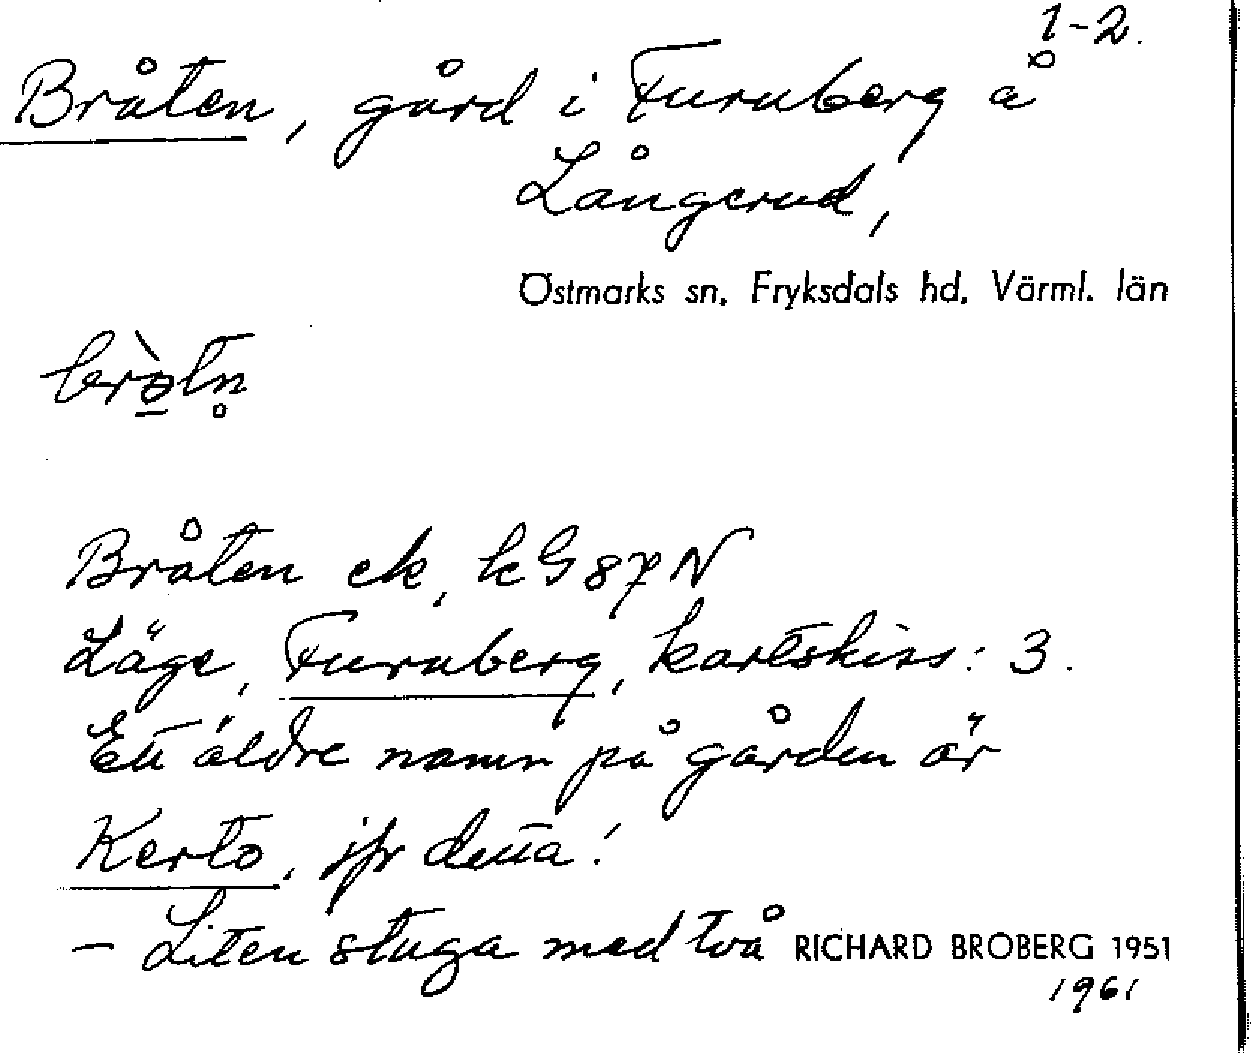 1-2.
Bråten, gård i Furuberg å
Långerud,
Östmarks sn. Fryksdals hd. Värml. län
Bråten ek, kG87N
Läge, Furuberg, kartskiss: 3.
Ett äldre namn på gården är
Kerto, jfr detta!
– Liten stuga med två RICHARD BROBERG 1951
1961